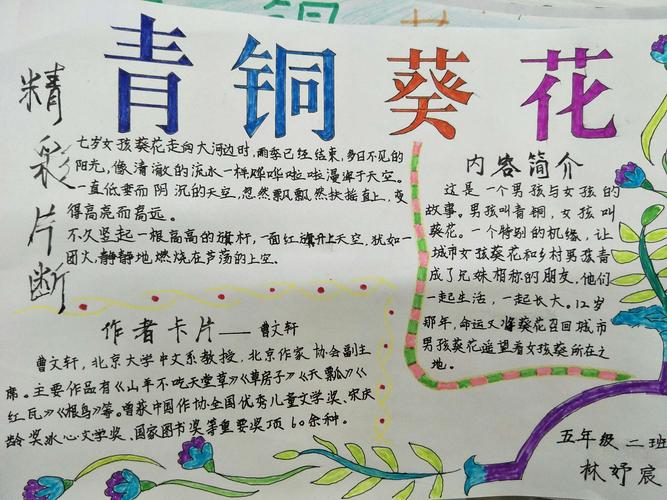 青铜葵花
精彩片断
七岁女孩葵花走向大河边时，雨季已经结束，多日不见的
阳光，像清澈的流水一样哗哗啦啦漫泻于天空。
一直低垂而阴沉的天空，忽然飘飘然扶摇直上，变
得高亮而高远。
不久竖起一根高高的旗杆，一面红旗升上天空，犹如一
团火，静静地燃烧在芦荡的上空。
作者卡片——曹文轩
曹文轩，北京大学中文系教授，北京作家协会副主
席。主要作品有《山羊不吃天堂草》《草房子》《天瓢》《
红瓦》《根鸟》等。曾获中国作协全国优秀儿童文学奖、宋庆
龄奖冰心文学奖、国家图书奖等重要奖项60余种。
内容简介
这是一个男孩与女孩的
故事。男孩叫青铜，女孩叫
葵花。一个特别的机缘，让
城市女孩葵花和乡村男孩青
成了兄妹相称的朋友，他们
一起生活，一起长大。12岁
那年，命运又将葵花召回城市
男孩葵遥望着女孩葵所在之
地。
五年级二班
林妤宸